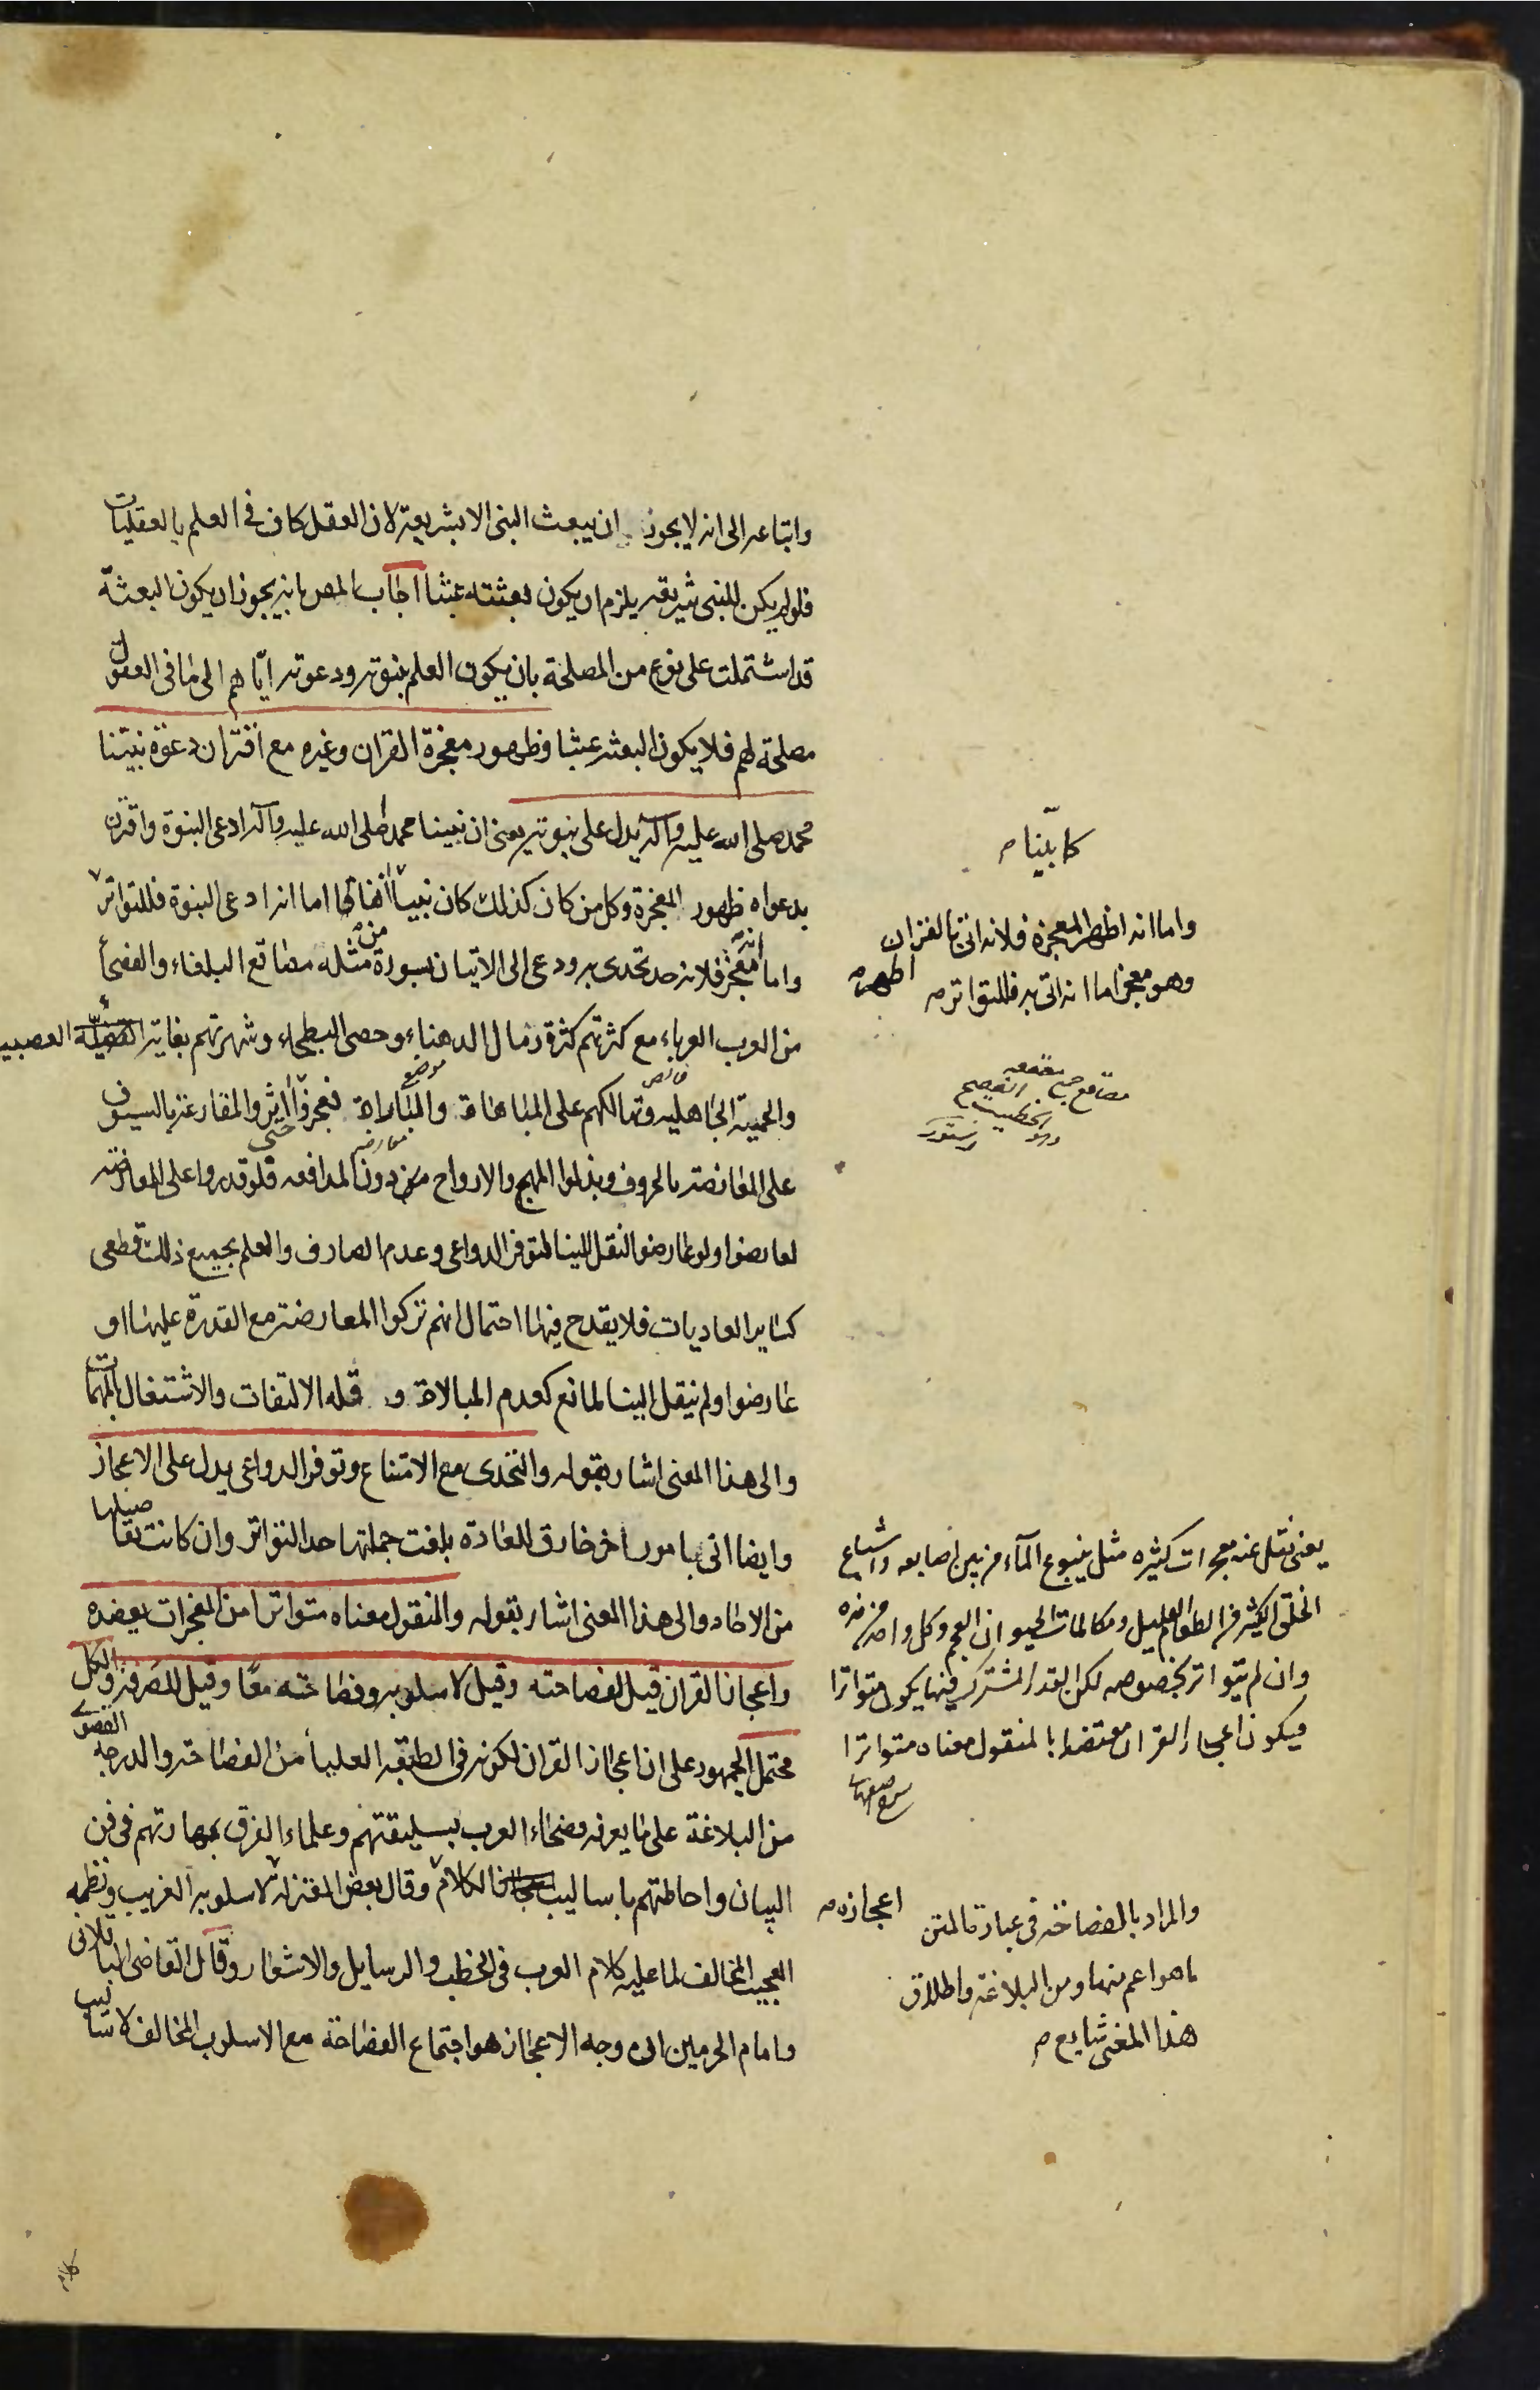 واتباعه الى انه لا يجوز ان يبعث النبى الا بشريعة لان العقل كاف فى العلم بالعقليات
فلو لم يكن للنبى شريعة يلزم ان يكون بعثته عبثا اجاب المص بانه يجوز ان يكون البعثة
قد اشتملت على نوع من المصلحة بان يكون العلم بنبوته ودعوته اياهم الى ما فى العقول
مصلحة لهم فلا يكون البعثة عبثا وظهور معجزة القران وغيره مع اقتران دعوة نبينا
محمد صلى الله عليه وآله يدل على نبوته يعنى ان نبينا محمد صلى الله عليه وآله ادعى النبوة واقترن
بدعواه ظهور المعجزة وكل من كان كذلك كان نبيا لما اما انه ادعى النبوة فللتواتر
واما انه معجز فلانه تحدى به ودعى الى الاتيان بسورة من مثله مصاقع البلغاء والفصحأ
من العرب العرباء مع كثرتهم كثرة رمال الدهناء وحصى البطحاء وشهرتهم بغاية العصبية
والحمية الجاهلية وتهالكهم على المباهاة والمباراة فعجزوا حتى اثروا المقارعة بالسيوف
على المعارضة بالحروف وبذلوا المهج والارواح دون المدافعه فلو قدروا على المعارضة
لعارضوا ولو عارضوا لنقل الينا لتوفر الدواعى وعدم الصارف والعلم بجميع ذلك قطعى
كساير العاديات فلا يقدح فيها احتمال انهم تركوا المعارضة مع القدرة عليها او
عارضوا ولم ينقل الينا لمانع كعدم المبالاة و قلة الالتفات والاشتغال بالمهمات
والى هذا المعنى اشار بقوله والتحدى مع الامتناع وتوفر الدواعى يدل على الاعجاز
وايضا اتى بامور اخر خارق للعادة بلغت جملتها حد التواتر وان كانت تفاصيلها
من الاحاد والى هذا المعنى اشار بقوله والمنقول معناه متواترا من المعجزات يعضده
واعجاز القران قيل لفصاحته وقيل لاسلوبه وفصاحته معا وقيل للصرفة والكل
محتمل الجمهور على ان اعجاز القران لكونه فى الطبقة العليا من الفصاحة والدرجة القصوى
من البلاغة على ما يعرفه فصحاء العرب بسليقتهم وعلماء الفرق بمهارتهم فى فن
البيان واحاطتهم باساليب الكلام وقال بعض المعتزلة لاسلوبه الغريب ونظمه
العجيب المخالف لما عليه كلام العرب فى الخطب والرسايل والاشعار وقال القاضى الباقلانى
وامام الحرمين ان وجه الاعجاز هو اجتماع الفصاحة مع الاسلوب المخالف لاساليب
كلام
كما بينا م
واما انه اظهر المعجزة فلانه اتى بالقران
وهو معجز اما انه اتى به فللتواتر م
يعنى نقل عنه معجزات كثيره مثل ينبوع المآء من بين اصابعه واشباع
الخلق الكثير من الطعام القليل ومكالمات الحيوان العجم وكل واحد منها
وان لم يتواتر بخصوصه لكن القدر المشترك فيها يكون متواترا
فيكون اعجاز القران معتضدا بالمنقول معناه متواترا
والمراد بالفصاحة فى عبارة المتن
ما هو اعم منها ومن البلاغة واطلاق
هذا المعنى شايع م
اعجازه م